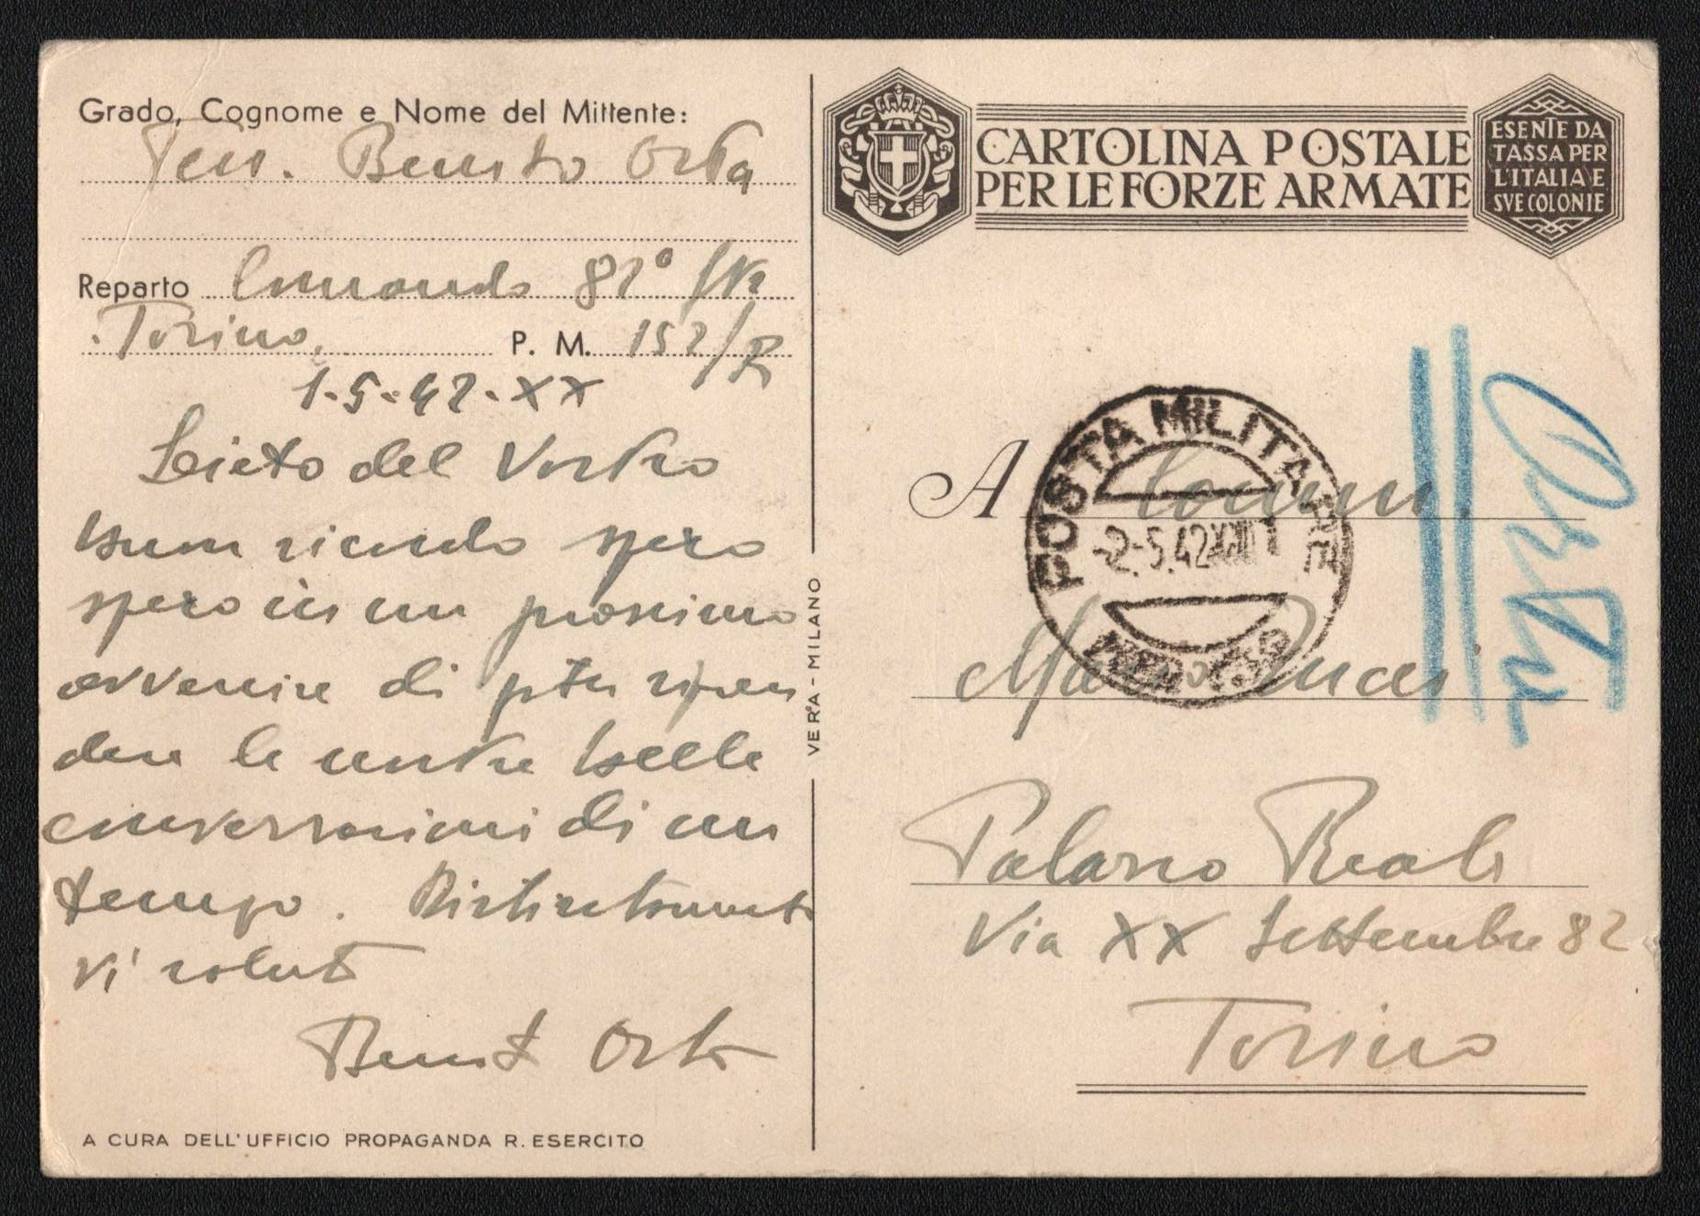 Grado, Cognome e Nome del Mittente:
Ten. Benito Orta
Reparto Comando 82° ftr
Torino, P. M. 152/R
1-5-42-XX
Lieto del Vostro
buon ricordo spero
spero in un prossimo
avvenire di poter ripren
dere le nostre belle
conversazioni di un
tempo. Distintamente
vi saluto
Benito Orta
A CURA DELL'UFFICIO PROPAGANDA R. ESERCITO
VERA - MILANO
CARTOLINA POSTALE
PER LE FORZE ARMATE
ESENTE DA
TASSA PER
L'ITALIA E
SVE COLONIE
POSTA MILITARE
-2.5.42
A Comm.
Mario Pucci
Palazzo Reale
Via XX Settembre 82
Torino
Orta